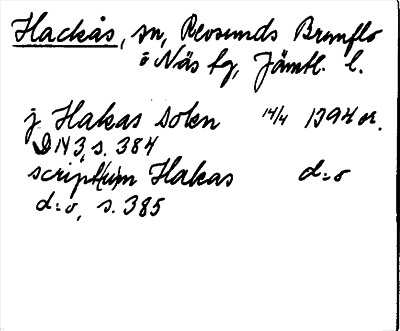 Hackås, sn, Revsunds Brunflo
o Näs tg, Jämtl. l.
j Hakas sokn 14/4 1394 or.
DN 3, s. 384
script(um) Hakas d:o
d:o, s. 385